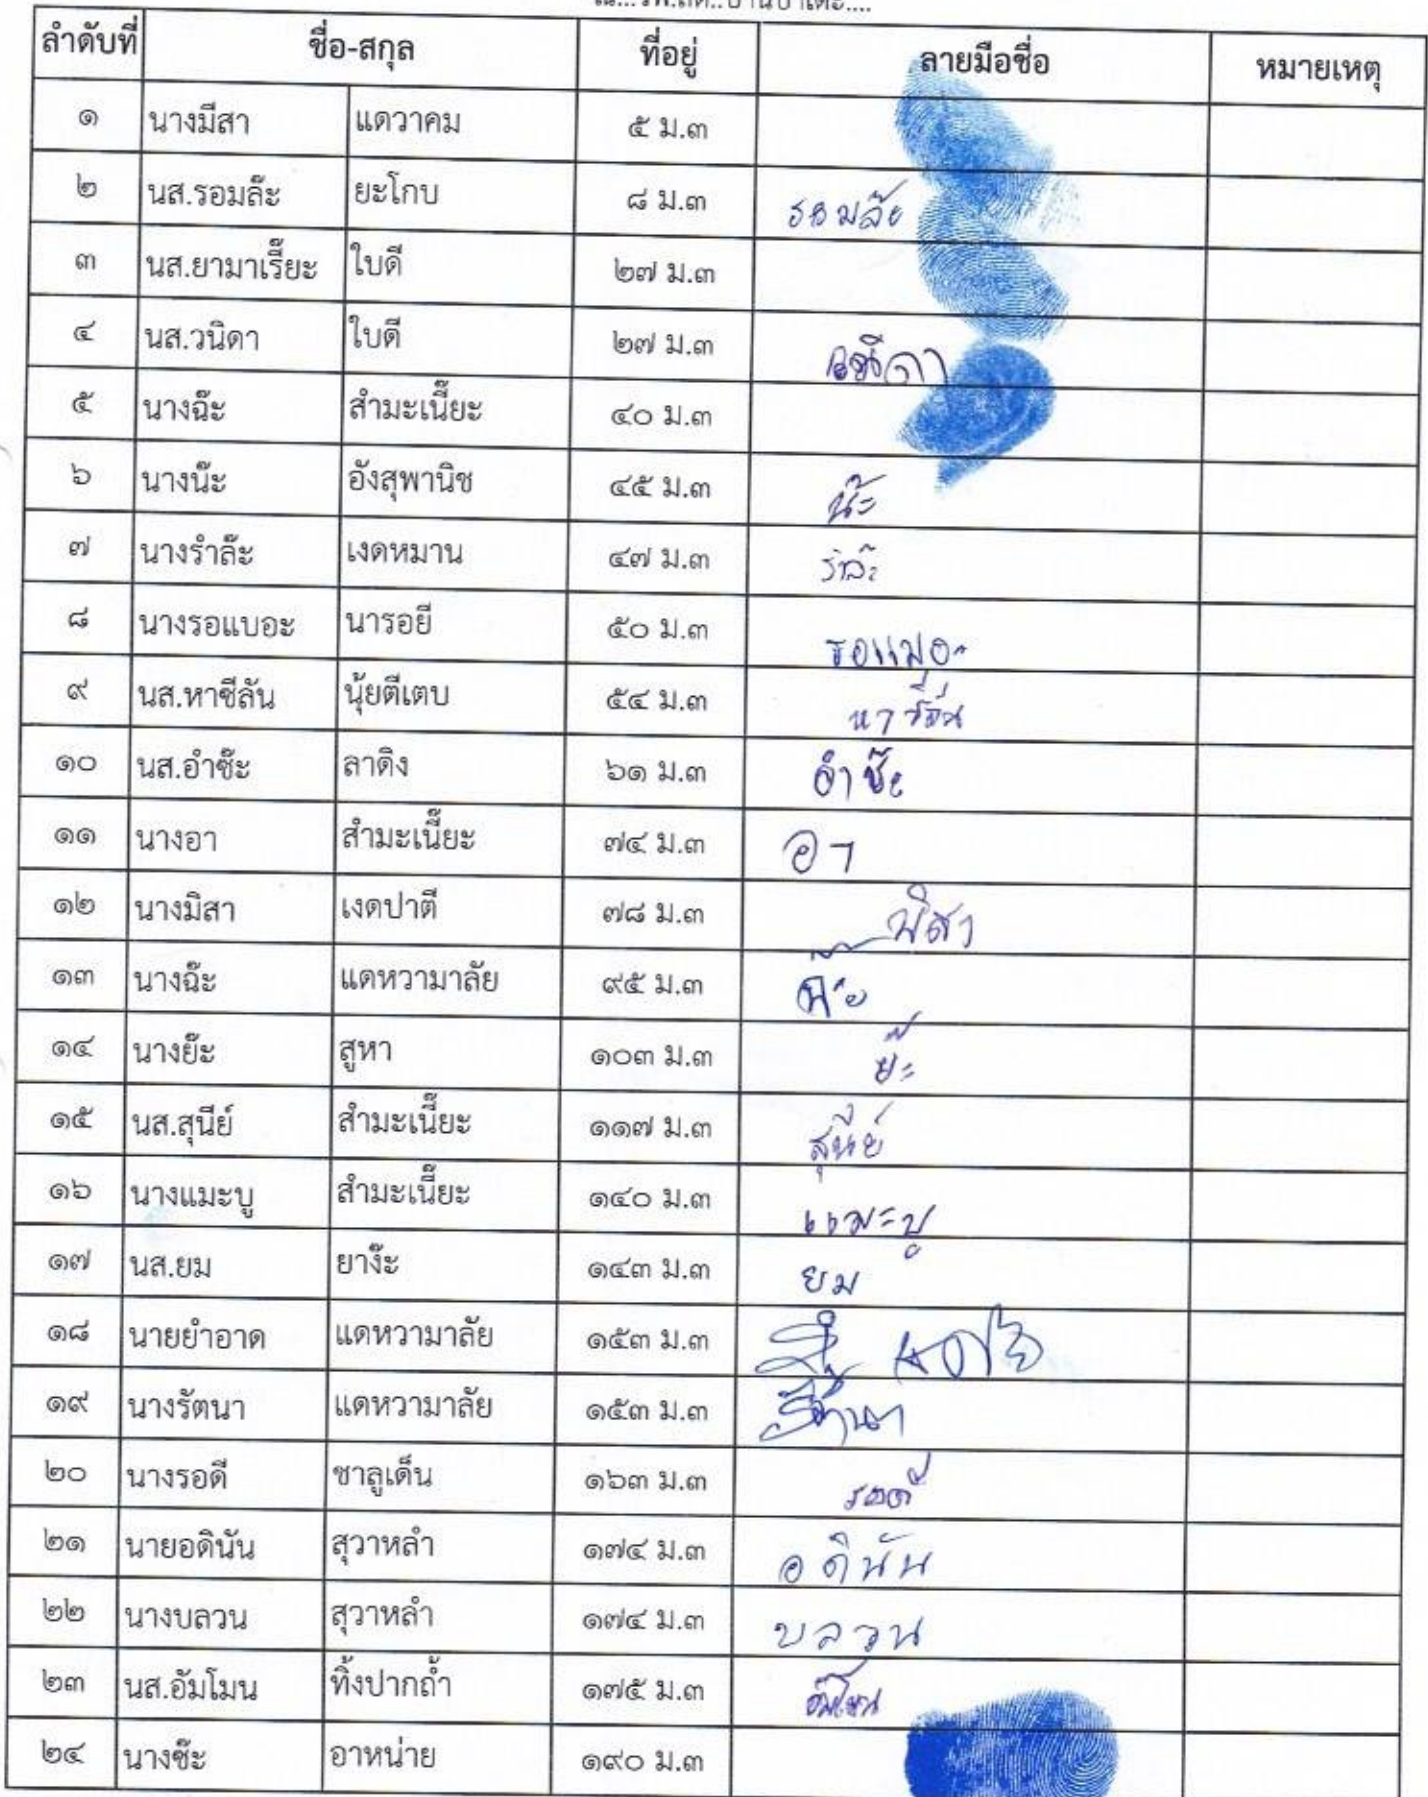 ลำดับที่ ชื่อ-สกุล ที่อยู่ ลายมือชื่อ หมายเหตุ
๑ นางมีสา แดวาคม ๕ ม.๓
๒ นส.รอมล๊ะ ยะโกบ ๘ ม.๓ รอมล๊ะ
๓ นส.ยามาเรี๊ยะ ใบดี ๒๗ ม.๓
๔ นส.วนิดา ใบดี ๒๗ ม.๓ วนิดา
๕ นางฉ๊ะ สำมะเนี๊ยะ ๔๐ ม.๓
๖ นางน๊ะ อังสุพานิช ๔๕ ม.๓ น๊ะ
๗ นางรำล๊ะ เงดหมาน ๔๗ ม.๓ รำล๊ะ
๘ นางรอแบอะ นารอยี ๕๐ ม.๓
๙ นส.หาซีลัน นุ้ยตีเตบ ๕๔ ม.๓
๑๐ นส.อำซ๊ะ ลาดิง ๖๑ ม.๓ อำซ๊ะ
๑๑ นางอา สำมะเนี๊ยะ ๗๔ ม.๓ อา
๑๒ นางมิสา เงดปาตี ๗๘ ม.๓ มิสา
๑๓ นางฉ๊ะ แดหวามาลัย ๙๕ ม.๓ ฉ๊ะ
๑๔ นางย๊ะ สูหา ๑๐๓ ม.๓ ย๊ะ
๑๕ นส.สุนีย์ สำมะเนี๊ยะ ๑๑๗ ม.๓ สุนีย์
๑๖ นางแมะบู สำมะเนี๊ยะ ๑๔๐ ม.๓ แมะบู
๑๗ นส.ยม ยาง๊ะ ๑๔๓ ม.๓ ยม
๑๘ นายยำอาด แดหวามาลัย ๑๕๓ ม.๓
๑๙ นางรัตนา แดหวามาลัย ๑๕๓ ม.๓ รัตนา
๒๐ นางรอดี ซาลูเด็น ๑๖๓ ม.๓ รอดี
๒๑ นายอดินัน สุวาหลำ ๑๗๔ ม.๓ อดินัน
๒๒ นางบลวน สุวาหลำ ๑๗๔ ม.๓ บลวน
๒๓ นส.อัมโมน ทิ้งปากถ้ำ ๑๗๕ ม.๓ อัมโมน
๒๔ นางซ๊ะ อาหน่าย ๑๙๐ ม.๓